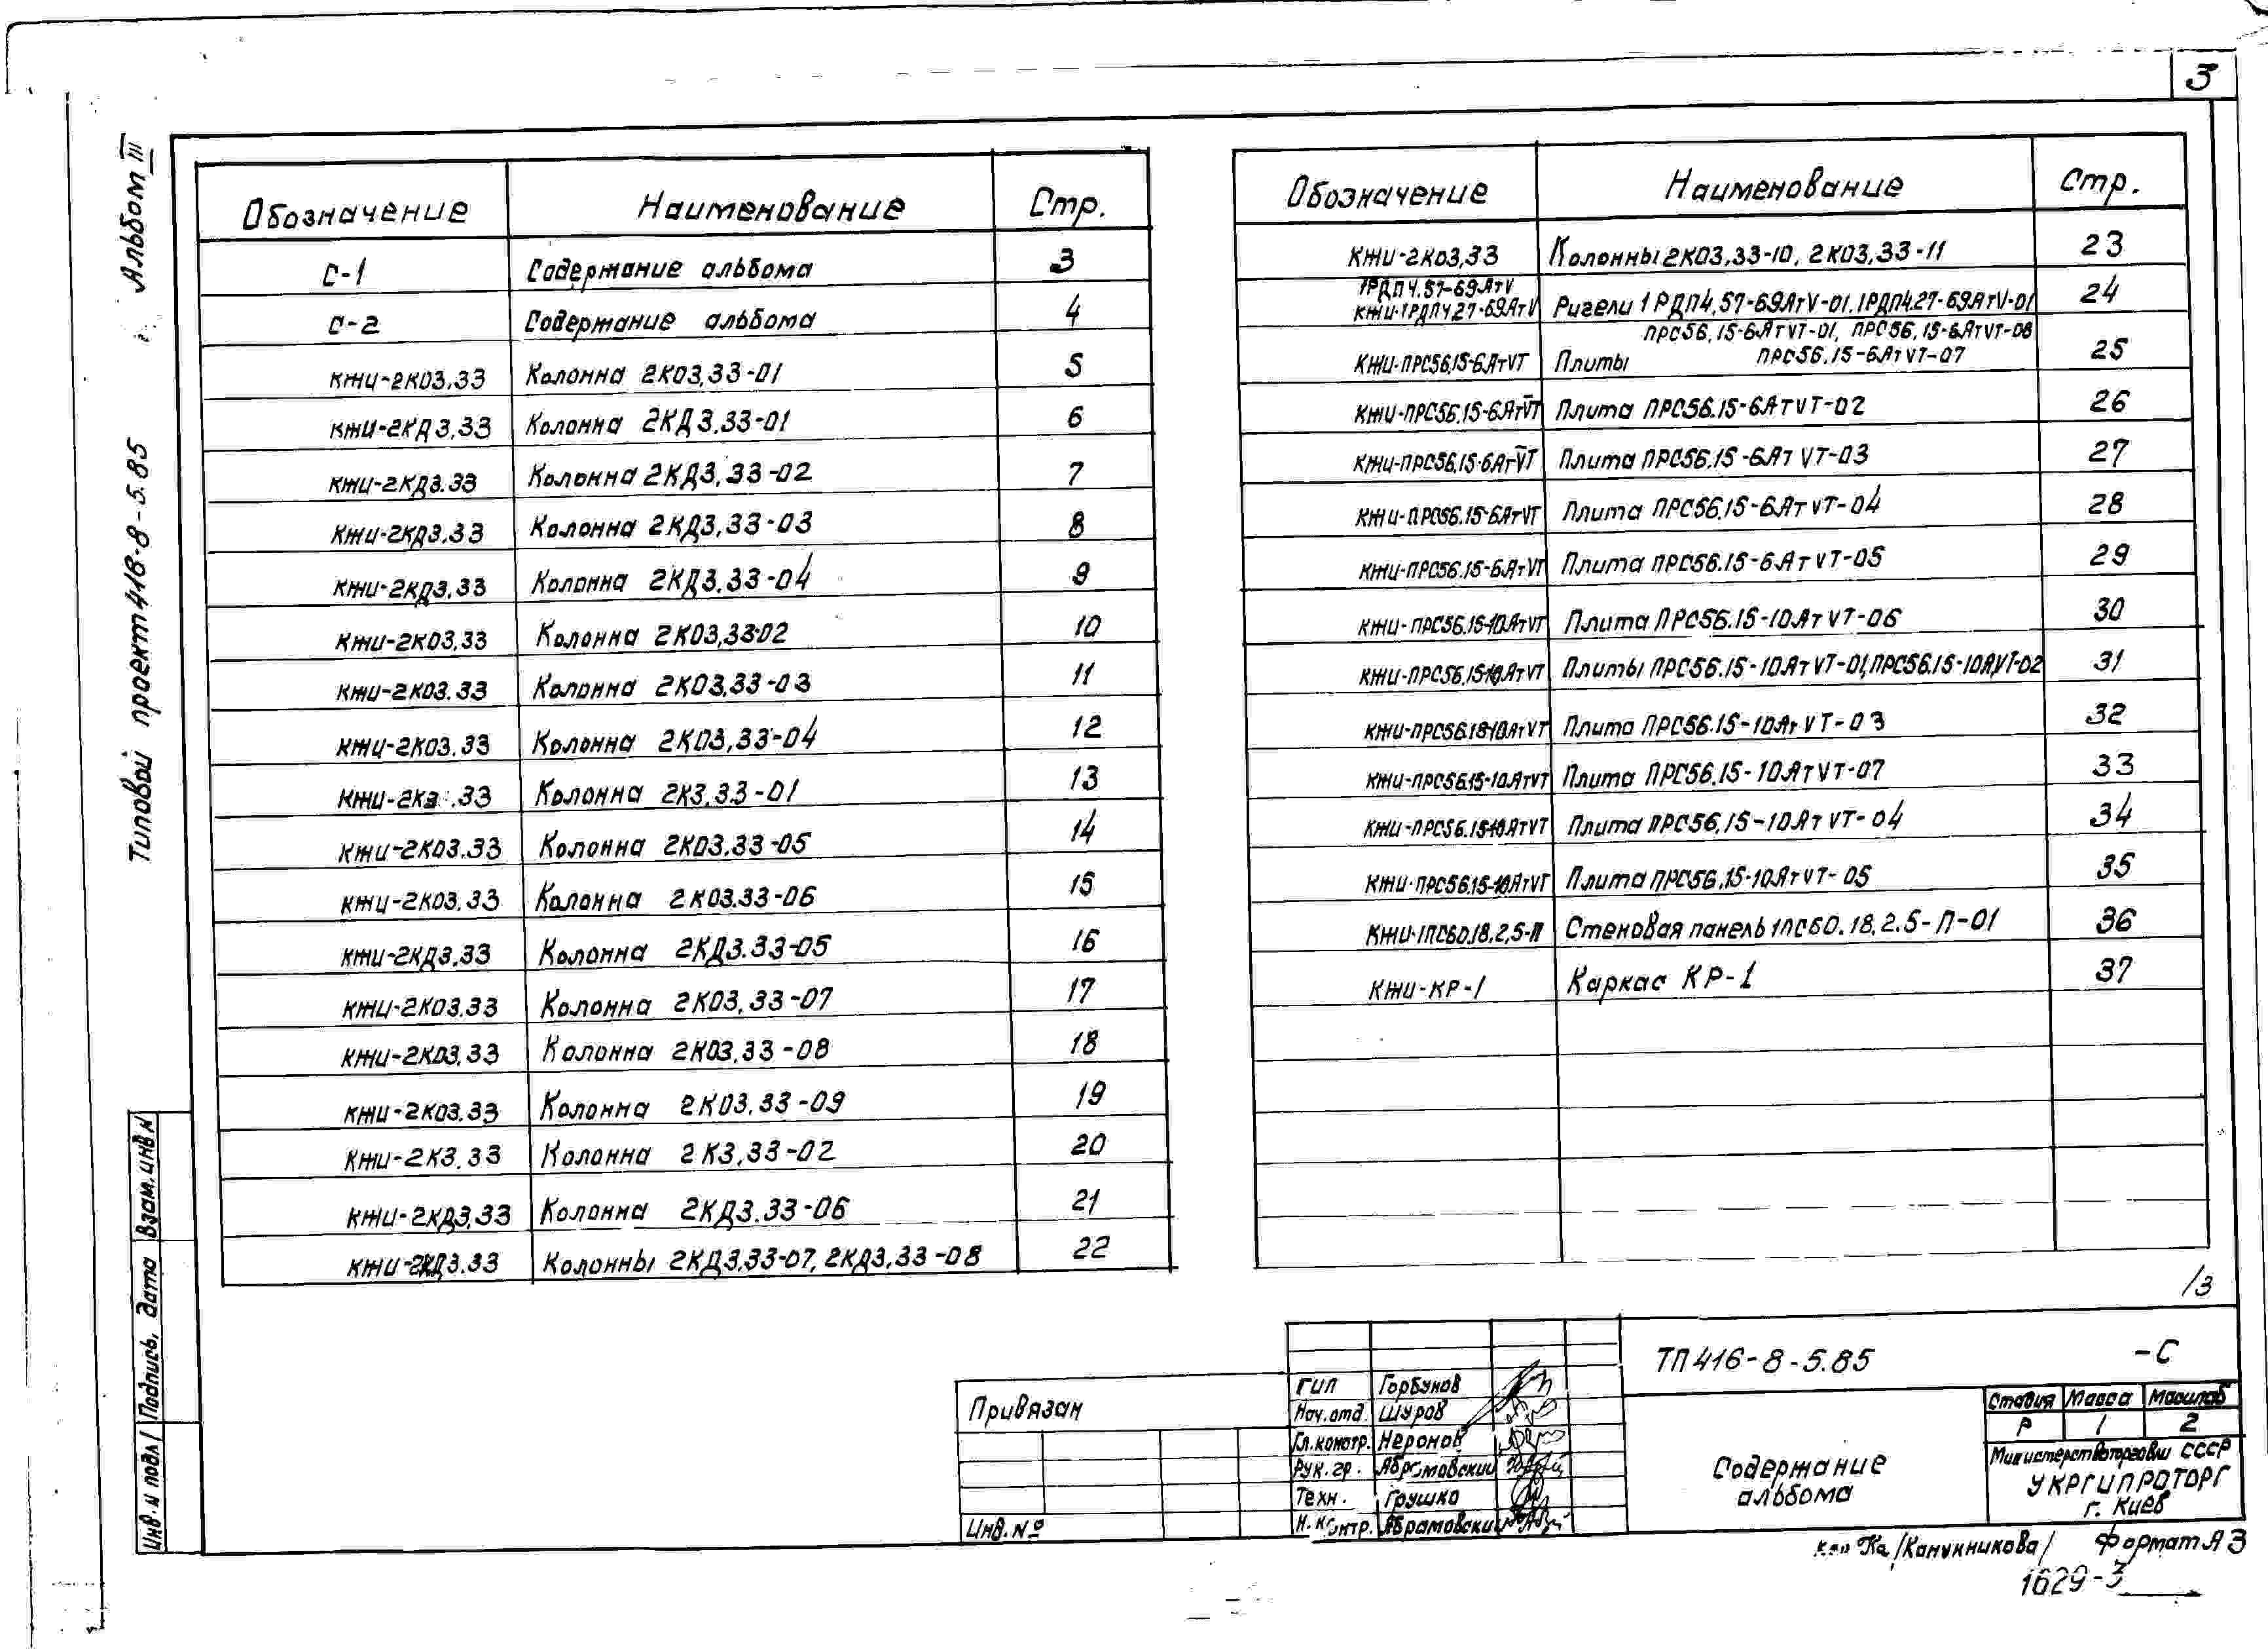 3
Альбом III
Типовой проект 416-8-5.85
Обозначение Наименование Стр.
С-1 Содержание альбома 3
С-2 Содержание альбома 4
КЖИ-2КО3.33 Колонна 2КО3.33-01 5
КЖИ-2КД3.33 Колонна 2КД3.33-01 6
КЖИ-2КД3.33 Колонна 2КД3.33-02 7
КЖИ-2КД3.33 Колонна 2КД3.33-03 8
КЖИ-2КД3.33 Колонна 2КД3.33-04 9
КЖИ-2КО3.33 Колонна 2КО3.33-02 10
КЖИ-2КО3.33 Колонна 2КО3.33-03 11
КЖИ-2КО3.33 Колонна 2КО3.33-04 12
КЖИ-2К3.33 Колонна 2К3.33-01 13
КЖИ-2КО3.33 Колонна 2КО3.33-05 14
КЖИ-2КО3.33 Колонна 2КО3.33-06 15
КЖИ-2КД3.33 Колонна 2КД3.33-05 16
КЖИ-2КО3.33 Колонна 2КО3.33-07 17
КЖИ-2КО3.33 Колонна 2КО3.33-08 18
КЖИ-2КО3.33 Колонна 2КО3.33-09 19
КЖИ-2К3.33 Колонна 2К3.33-02 20
КЖИ-2КД3.33 Колонна 2КД3.33-06 21
КЖИ-2КД3.33 Колонны 2КД3.33-07, 2КД3.33-08 22
Обозначение Наименование Стр.
КЖИ-2КО3.33 Колонны 2КО3.33-10, 2КО3.33-11 23
1РДП4.57-69АтV
КЖИ-1РДП4.27-69АтV Ригели 1РДП4.57-69АтV-01, 1РДП4.27-69АтV-01 24
ПРС56.15-6АтVТ-01, ПРС56.15-6АтVТ-06
КЖИ-ПРС56.15-6АтVТ Плиты ПРС56.15-6АтVТ-07 25
КЖИ-ПРС56.15-6АтVТ Плита ПРС56.15-6АтVТ-02 26
КЖИ-ПРС56.15-6АтVТ Плита ПРС56.15-6АтVТ-03 27
КЖИ-ПРС56.15-6АтVТ Плита ПРС56.15-6АтVТ-04 28
КЖИ-ПРС56.15-6АтVТ Плита ПРС56.15-6АтVТ-05 29
КЖИ-ПРС56.15-10АтVТ Плита ПРС56.15-10АтVТ-06 30
КЖИ-ПРС56.15-10АтVТ Плиты ПРС56.15-10АтVТ-01, ПРС56.15-10АтVТ-02 31
КЖИ-ПРС56.15-10АтVТ Плита ПРС56.15-10АтVТ-03 32
КЖИ-ПРС56.15-10АтVТ Плита ПРС56.15-10АтVТ-07 33
КЖИ-ПРС56.15-10АтVТ Плита ПРС56.15-10АтVТ-04 34
КЖИ-ПРС56.15-10АтVТ Плита ПРС56.15-10АтVТ-05 35
КЖИ-1ПС60.18.2,5-П Стеновая панель 1ПС60.18.2.5-П-01 36
КЖИ-КР-1 Каркас КР-1 37
/3
Инв. N подл/ Подпись, дата Взам.инв N
Привязан
Инв. №
ГИП Горбунов
Нач.отд. Шуров
Гл.констр. Неронов
Рук. гр. Абрамовский
Техн. Грушко
Н.контр. Абрамовский
ТП 416-8-5.85 -С
Содержание
альбома
Стадия Масса Масштаб
Р 1 2
Министерство торговли СССР
УКРГИПРОТОРГ
г. Киев
/Канунникова/ Формат А3
1629-3